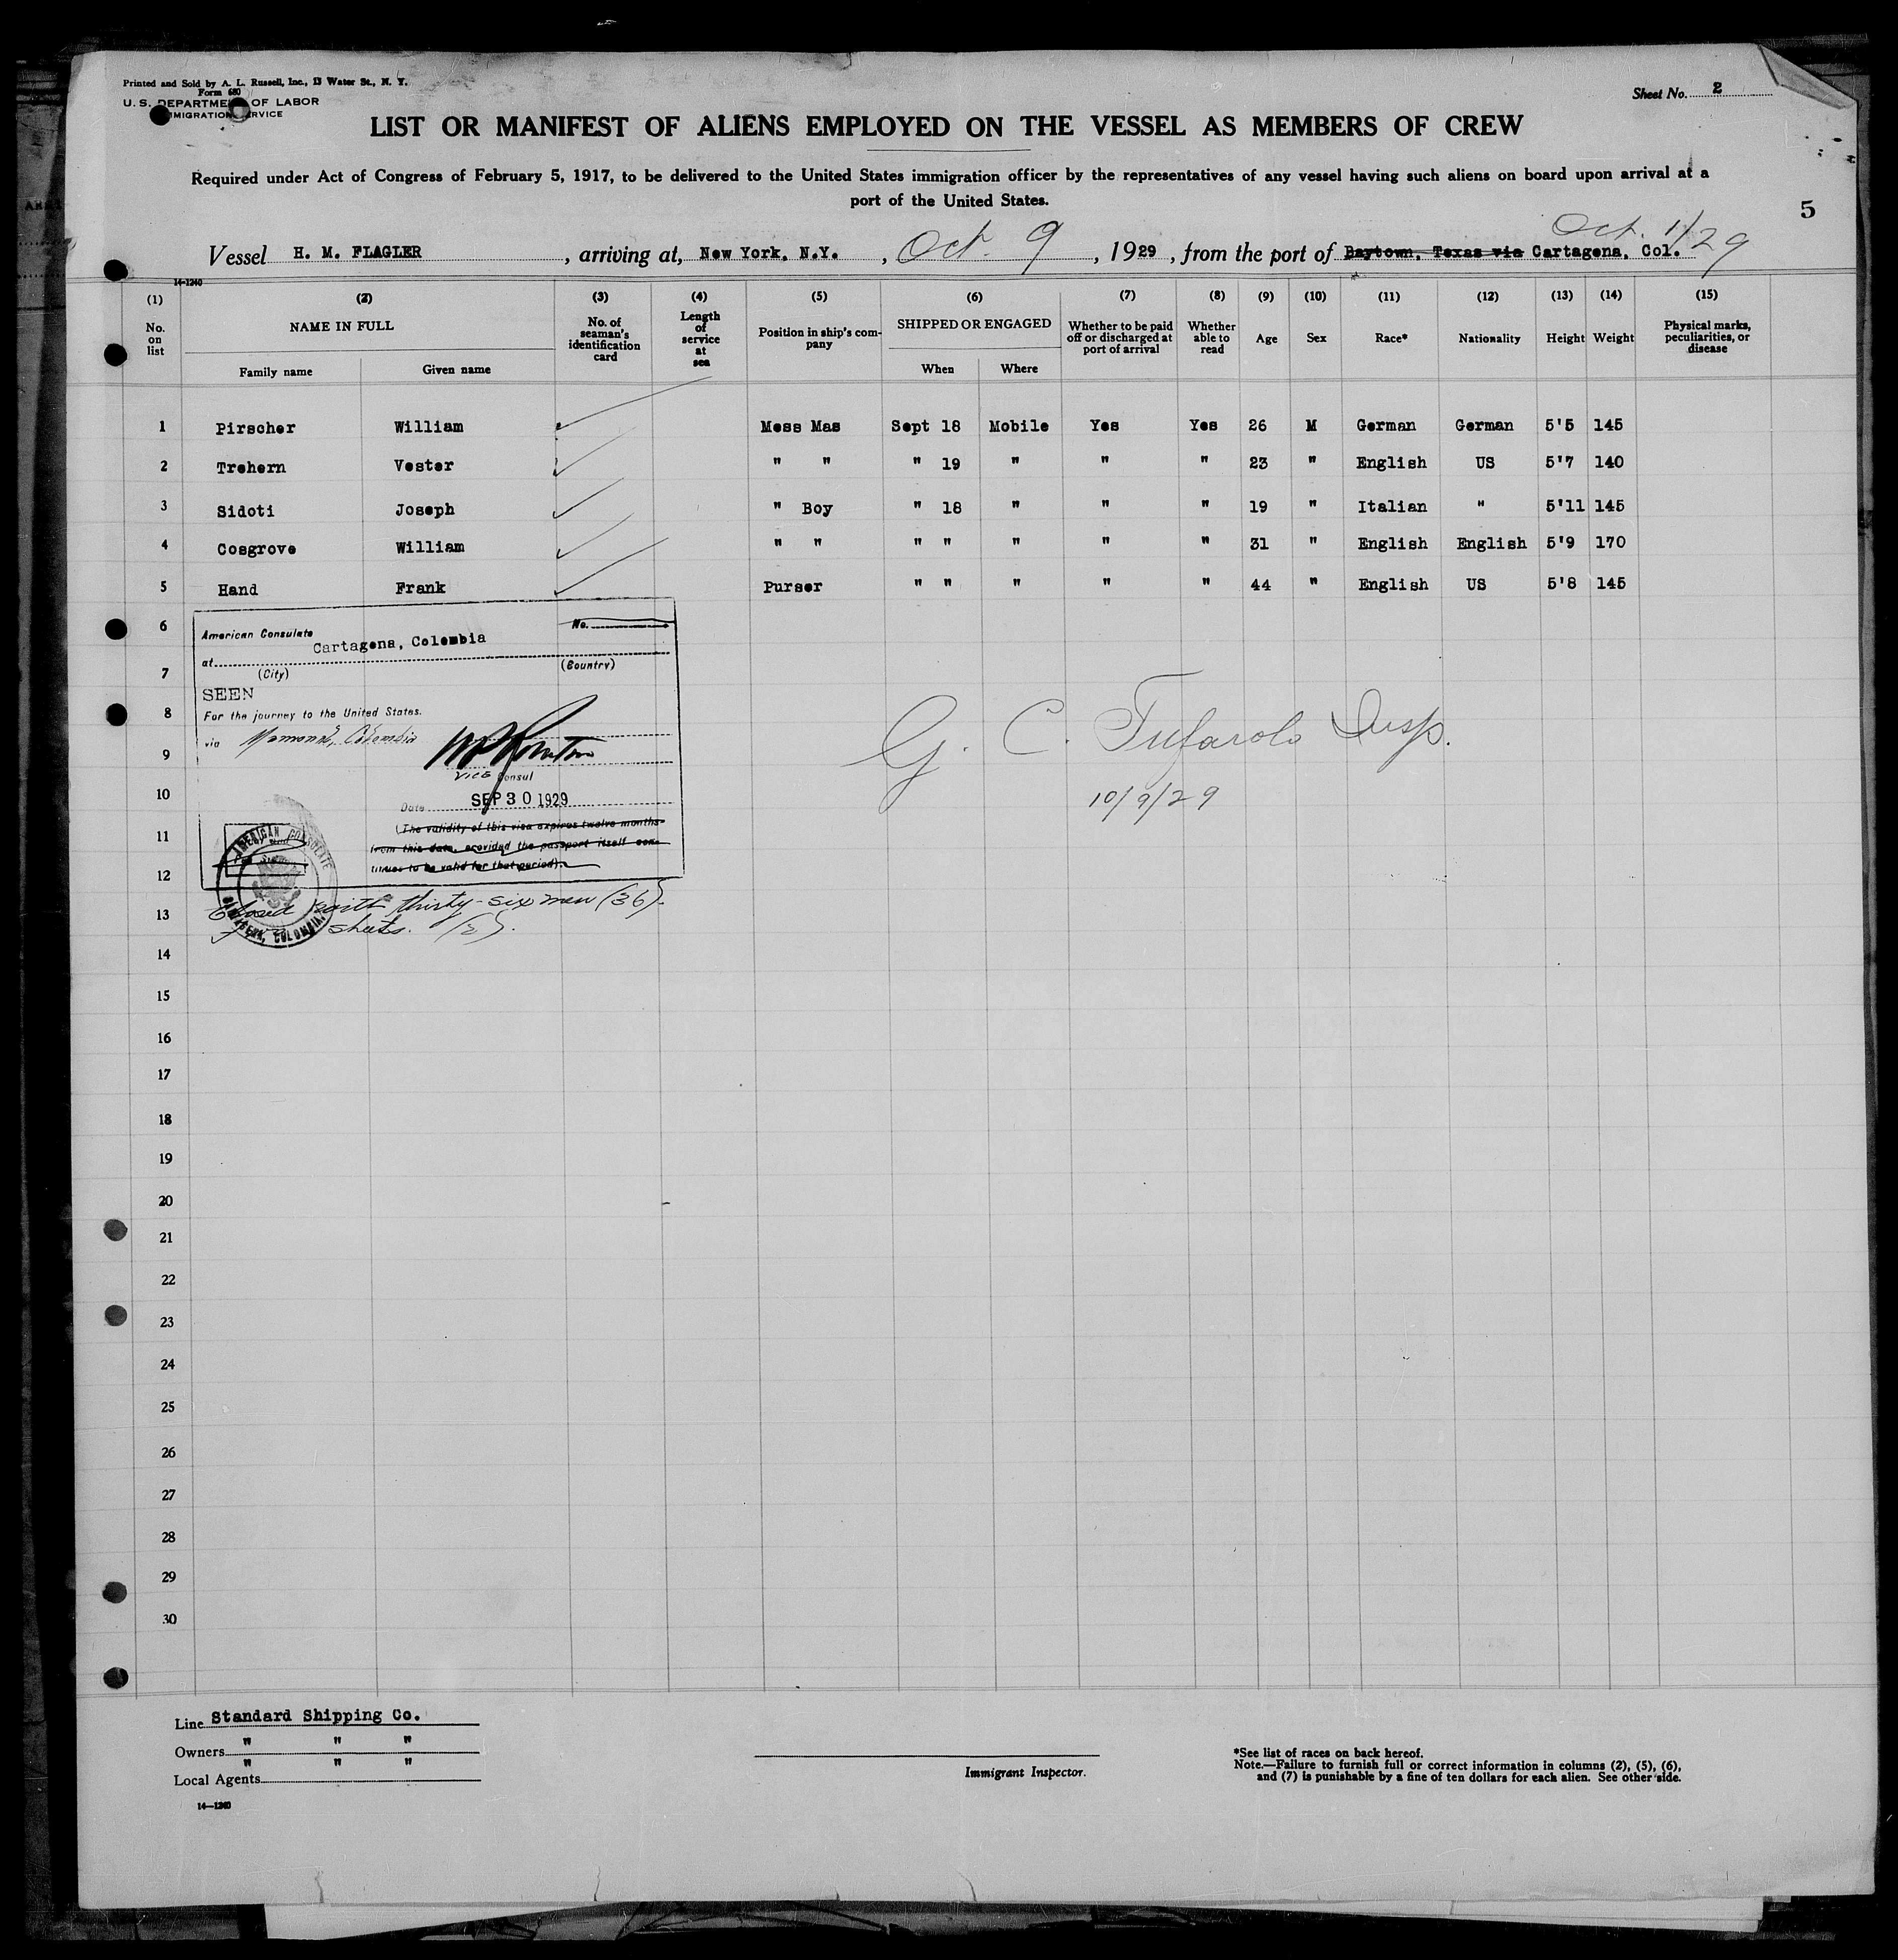 Printed and Sold by A. L. Russell, Inc., 13 Water St., N. Y.
Form 680
U. S. DEPARTMENT OF LABOR
IMMIGRATION SERVICE
Sheet No. 2
LIST OR MANIFEST OF ALIENS EMPLOYED ON THE VESSEL AS MEMBERS OF CREW
Required under Act of Congress of February 5, 1917, to be delivered to the United States immigration officer by the representatives of any vessel having such aliens on board upon arrival at a
port of the United States.
5
Oct. 1/29
Vessel H. M. FLAGLER, arriving at, New York, N.Y., Oct. 9, 1929, from the port of Baytown, Texas via Cartagena, Col.
14-1240
(1) (2) (3) (4) (5) (6) (7) (8) (9) (10) (11) (12) (13) (14) (15)
No. on list NAME IN FULL No. of seaman's identification card Length of service at sea Position in ship's company SHIPPED OR ENGAGED Whether to be paid off or discharged at port of arrival Whether able to read Age Sex Race* Nationality Height Weight Physical marks, peculiarities, or disease
Family name Given name When Where
1 Pirscher William Mess Mas Sept 18 Mobile Yes Yes 26 M German German 5'5 145
2 Trehern Vester " " " 19 " " " 23 " English US 5'7 140
3 Sidoti Joseph " Boy " 18 " " " 19 " Italian " 5'11 145
4 Cosgrove William " " " " " " " 31 " English English 5'9 170
5 Hand Frank Purser " " " " " 44 " English US 5'8 145
6
American Consulate No.
at Cartagena, Colombia
(City) (Country)
7
SEEN
8
For the journey to the United States.
via Mamonal, Colombia
9
G. C. Tufarolo Insp.
Vice Consul
10
Date SEP 30 1929
10/9/29
(The validity of this visa expires twelve months
11
from this date, provided the passport itself con-
tinues to be valid for that period).
12
AMERICAN CONSULATE
CARTAGENA, COLOMBIA
13
Closed with thirty-six men (36).
sheets. (2).
14
15
16
17
18
19
20
21
22
23
24
25
26
27
28
29
30
Line Standard Shipping Co.
Owners " " "
Local Agents " " "
14—1240
Immigrant Inspector.
*See list of races on back hereof.
Note.—Failure to furnish full or correct information in columns (2), (5), (6),
and (7) is punishable by a fine of ten dollars for each alien. See other side.